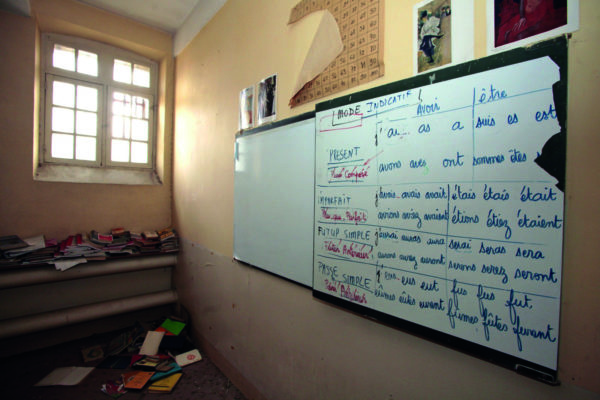 MODE INDICATIF
AVOIR être
j' ai... as a suis es est
PRESENT
Passé Composé
avons avez ont sommes êtes
IMPARFAIT avais avait étais étais était
Plus que Parfait avions aviez avaient étions étiez étaient
FUTUR SIMPLE aurai auras aura serai seras sera
Futur Antérieur aurons aurez auront serons serez seront
PASSE SIMPLE eus eut fus fus fut
Passé Antérieur eûmes eûtes eurent fûmes fûtes furent